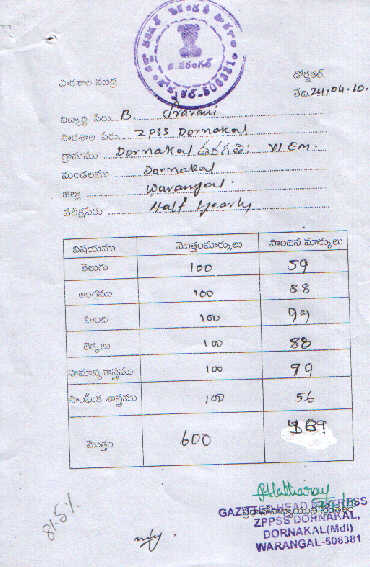 పాఠశాల ముద్ర
డోర్నకల్
తేది 24.04.10.
విద్యార్థి పేరు B. Sravani
పాఠశాల పేరు ZPSS Dornakal
గ్రామము Dornakal తరగతి VI EM.
మండలము Dornakal
జిల్లా Warangal
పరీక్షపేరు Half Yearly
విషయము మొత్తంమార్కులు పొందిన మార్కులు
తెలుగు 100 59
ఆంగ్లము 100 88
హిందీ 100
లెక్కలు 100 88
సామాన్య శాస్త్రము 100
సాంఘీక శాస్త్రము 100 56
మొత్తం 600
GAZETTED HEAD MISTRESS
ZPPSS DORNAKAL,
DORNAKAL(Mdl)
WARANGAL-506381